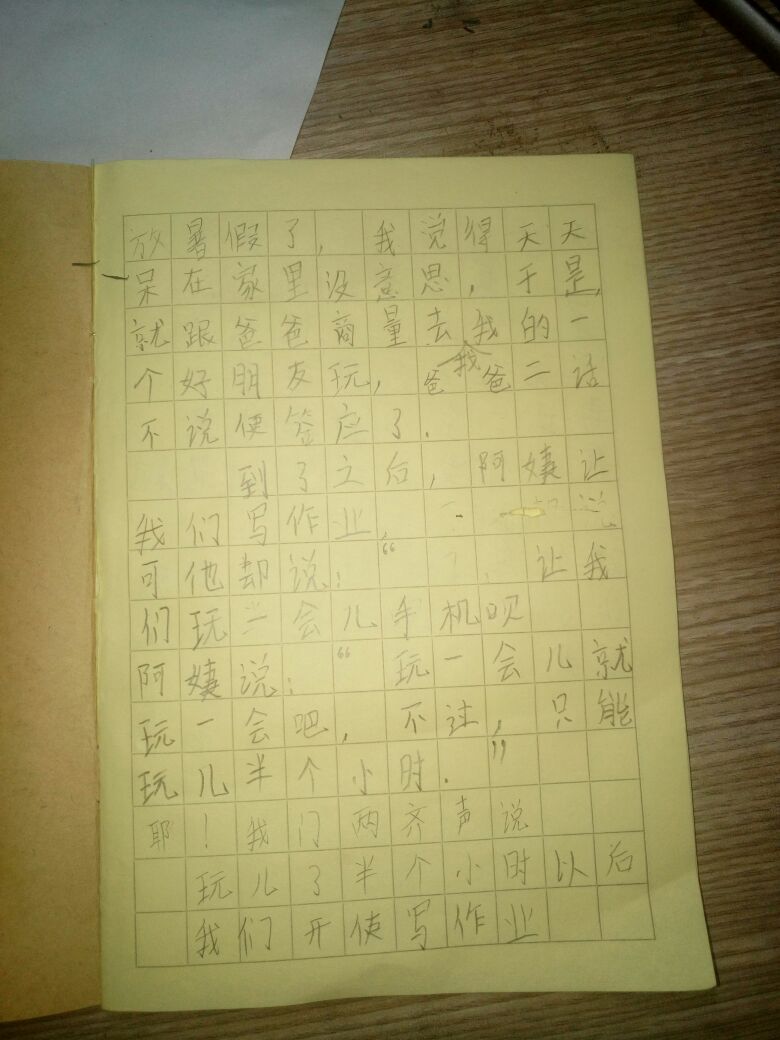 放暑假了，我觉得天天
呆在家里没意思，于是，
就跟爸爸商量去我的一
个好朋友玩，爸我爸二话
不说便答应了．
到了之后，阿姨让
我们写作业，
可他却说：“让我
们玩一会儿手机呗
阿姨说：“玩一会儿就
玩一会吧，不过，只能
玩儿半个小时．”
耶！我门两齐声说
玩儿了半个小时以后
我们开使写作业